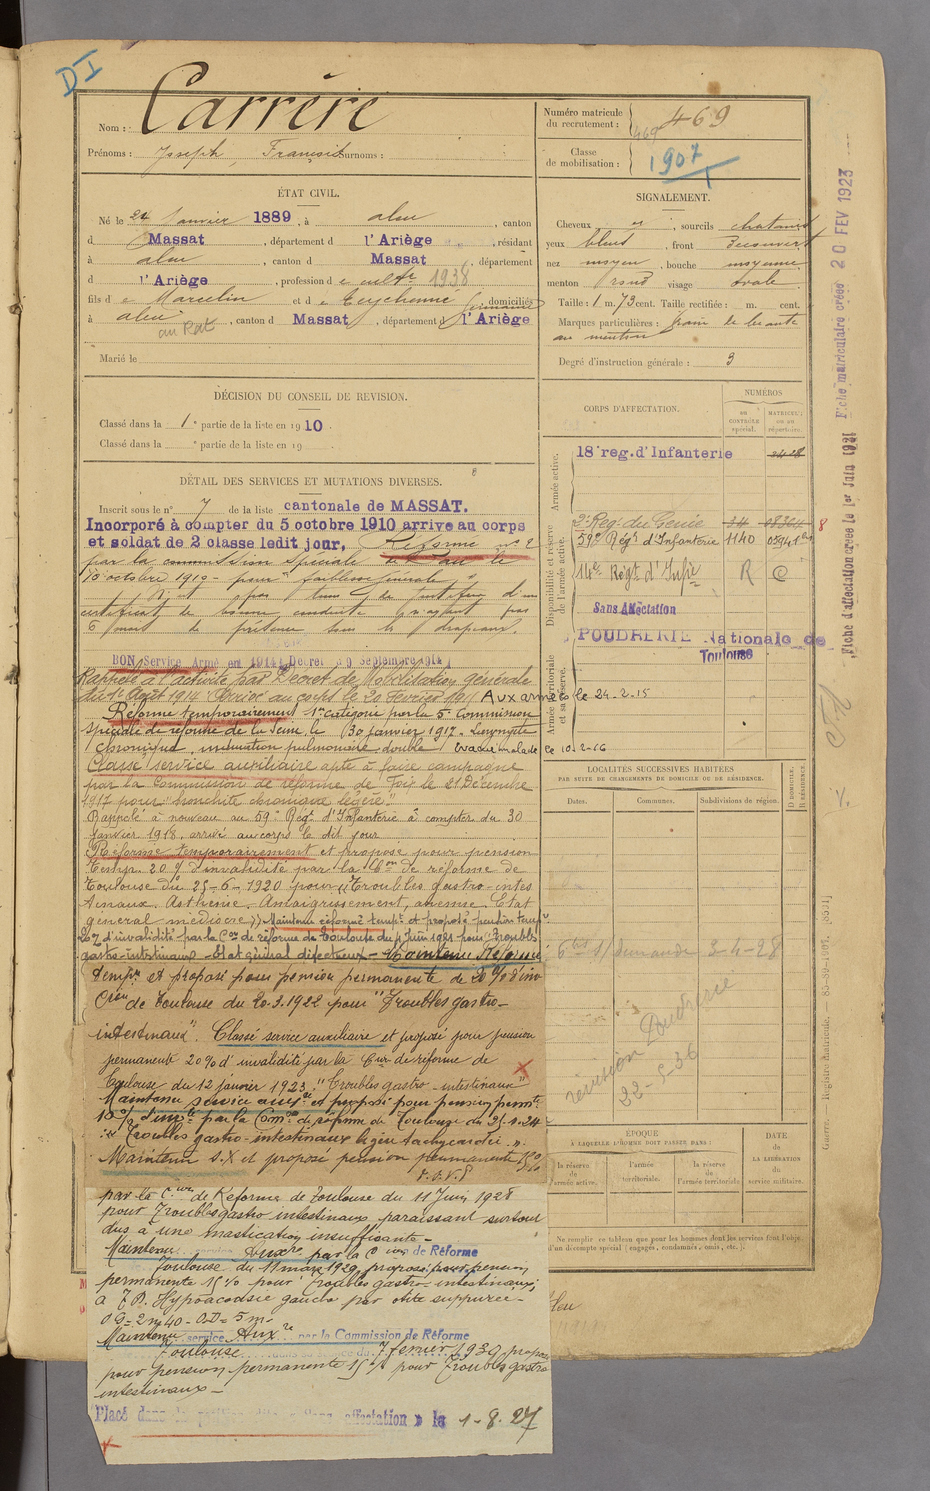 DI
Nom : Carrère
Prénoms : Joseph, François Surnoms :
Numéro matricule du recrutement : 469
469
Classe de mobilisation : 1907
ÉTAT CIVIL.
Né le 24 Janvier 1889, à Aleu, canton
d Massat, département d l'Ariège, résidant
à Aleu, canton d Massat, département
d l'Ariège, profession d e cultr 1938
fils d e Marcelin et d e Eychenne Germaine, domiciliés
à Aleu, canton d Massat, département d l'Ariège
Marié le
SIGNALEMENT.
Cheveux , sourcils chatains
yeux bleus, front Découvert
nez moyen, bouche moyenne
menton rond visage ovale
Taille : 1 m. 73 cent. Taille rectifiée : m. cent.
Marques particulières : grain de beauté
au menton
Degré d'instruction générale : 3
DÉCISION DU CONSEIL DE REVISION.
Classé dans la 1e partie de la liste en 1910.
Classé dans la e partie de la liste en 19
DÉTAIL DES SERVICES ET MUTATIONS DIVERSES.
Inscrit sous le n° 7 de la liste cantonale de MASSAT.
Incorporé à compter du 5 octobre 1910 arrive au corps
et soldat de 2 classe ledit jour. Réformé n° 2
par la commission spéciale de Pau le
18 octobre 1910 pour "faiblesse générale"
N'est pas tenu de justifier d'un
certificat de bonne conduite n'ayant pas
6 mois de présence sous les drapeaux.
BON Service Armé en 1914 (Décret du 9 Septembre 1914)
Rappelé à l'activité par Décret de Mobilisation générale
du 1er Août 1914. Arrivé au corps le 20 février 1915 Aux armées le 24-2-15
Réformé temporairement 1re catégorie par la 5e Commission
spéciale de réforme de la Seine, le 30 janvier 1917. Laryngite
chronique, induration pulmonaire double. Evacué malade le 10-2-16
Classé service auxiliaire apte à faire campagne
par la Commission de réforme de Foix le 21 Décembre
1917 pour "bronchite chronique légère".
Rappelé à nouveau au 59e Régt d'Infanterie à compter du 30
Janvier 1918, arrivé au corps le dit jour
Réformé temporairement et proposé pour pension
temp. 20 % d'invalidité par la Con de réforme de
Toulouse du 25-6-1920 pour "Troubles gastro-intes
tinaux. Asthénie. Amaigrissement, anémie. Etat
général médiocre" Maintenu réformé tempt et proposé pension temp
20% d'invalidité par la Con de réforme de Toulouse du 4 Juin 1921 pour "Troubles
gastro-intestinaux - Etat général défectueux - Maintenu Réformé
tempre et proposé pour pension permanente de 20% d'inv
Con de Toulouse du 20.3.1922 pour "Troubles gastro-
intestinaux". Classé service auxiliaire et proposé pour pension
permanente 20% d'invalidité par la Con de réforme de
Toulouse du 12 janvier 1923 "Troubles gastro-intestinaux"
Maintenu service auxre et proposé pour pension permte
10% d'invté par la Com de réforme de Toulouse du 25-1-24
"Troubles gastro-intestinaux légère tachycardie."
Maintenu S.X et proposé pension permanente 15%
par la Con de Réforme de Toulouse du 11 Juin 1928
pour Troubles gastro intestinaux paraissant surtout
dus à une mastication insuffisante -
Maintenu service Auxre par la Con de Réforme
Toulouse du 11 mars 1929, proposé pour pension
permanente 15% pour Troubles gastro-intestinaux;
Hypoacousie gauche par otite suppurée -
OG = 2m40 - OD = 5m -
Maintenu service Auxre par la Commission de Réforme
Toulouse du 7 fevrier 1930, proposé
pour pension permanente 15% pour Troubles gastro
intestinaux -
Placé dans la position dite « Sans affectation » le 1-8-27
CORPS D'AFFECTATION.
NUMÉROS
au contrôle spécial.
matricule ou au répertoire.
Armée active.
18 reg. d'Infanterie
Disponibilité et réserve de l'armée active.
2e Rég. du Génie 34 08364 8
59e Régt d'Infanterie 1140
14e Régt d'Infie R C
Sans Affectation
Armée territoriale et sa réserve.
POUDRERIE Nationale de
Toulouse
LOCALITÉS SUCCESSIVES HABITÉES
PAR SUITE DE CHANGEMENTS DE DOMICILE OU DE RÉSIDENCE.
Dates.
Communes.
Subdivisions de région.
D. DOMICILE. R. RÉSIDENCE.
demande 3-4-28
révision Poudrerie
22-5-36
ÉPOQUE
À LAQUELLE L'HOMME DOIT PASSER DANS :
la réserve de l'armée active.
l'armée territoriale.
la réserve de l'armée territoriale
DATE de LA LIBÉRATION du service militaire.
Ne remplir ce tableau que pour les hommes dont les services font l'objet
d'un décompte spécial (engagés, condamnés, omis, etc.).
Fiche matriculaire créée 20 FEV 1923
Fiche d'affectation créée le 1er Juin 1921
Guerre. Registre matricule.